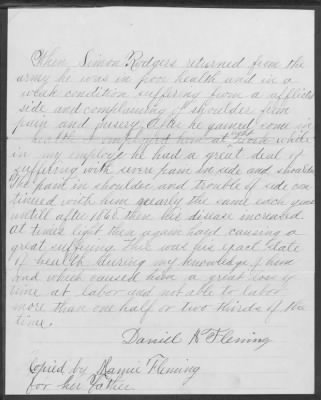 When Simon Rodgers returned from the
army he was in poor health and in a
weak condition suffering from a afflicted
side and complaining of shoulder from
pain and misery. After he gained some in
health I employed him at while
in my employ he had a great deal of
suffering with severe pain in side and shoulder
The pain in shoulder and trouble of side con
tinued with him nearly the same each year
untill after 1860. then his disease increased.
At times light then again hard causing a
great suffering This was his exact state
of health during my knowledge of him
and which caused him a great loss of
time at labor and not able to labor
more than one half or two thirds of the
time.
Daniel N Fleming
Copied by Mamie Fleming
for her Father